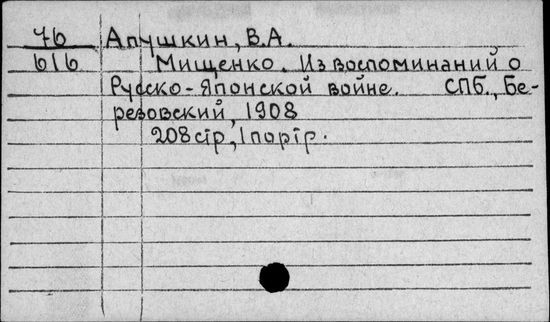 76 Апушкин, В.А.
616 Мищенко. Из воспоминаний о
Русско-Японской войне. СПб., Бе-
резовский, 1908
208стр., 1 портр.